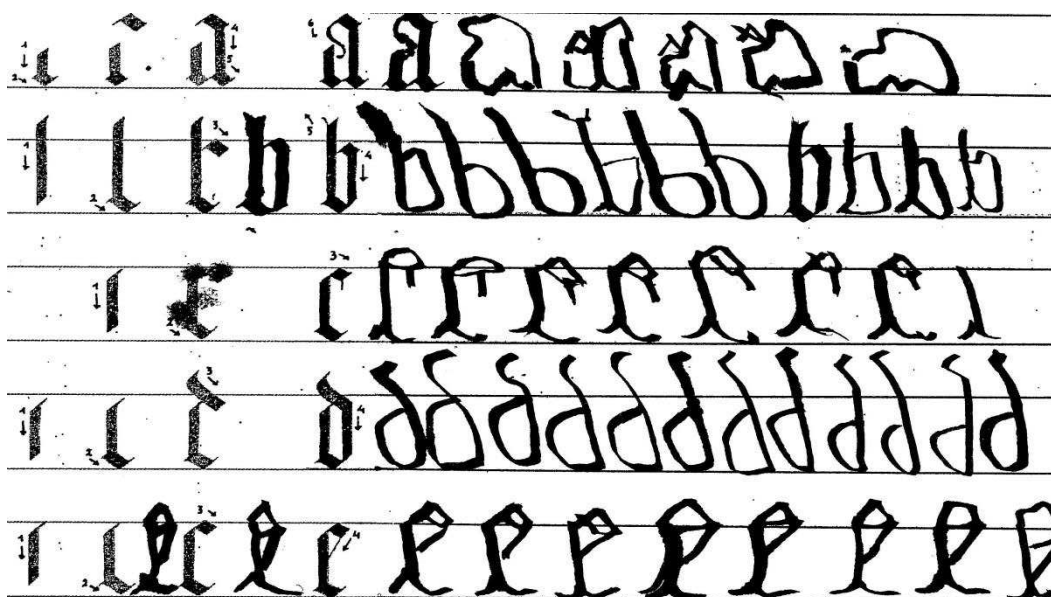 a a a a a a a a
b b b b b b b b b b b b
c c c c c c c c
d d d d d d d d d d d d d
e e e e e e e e e e e